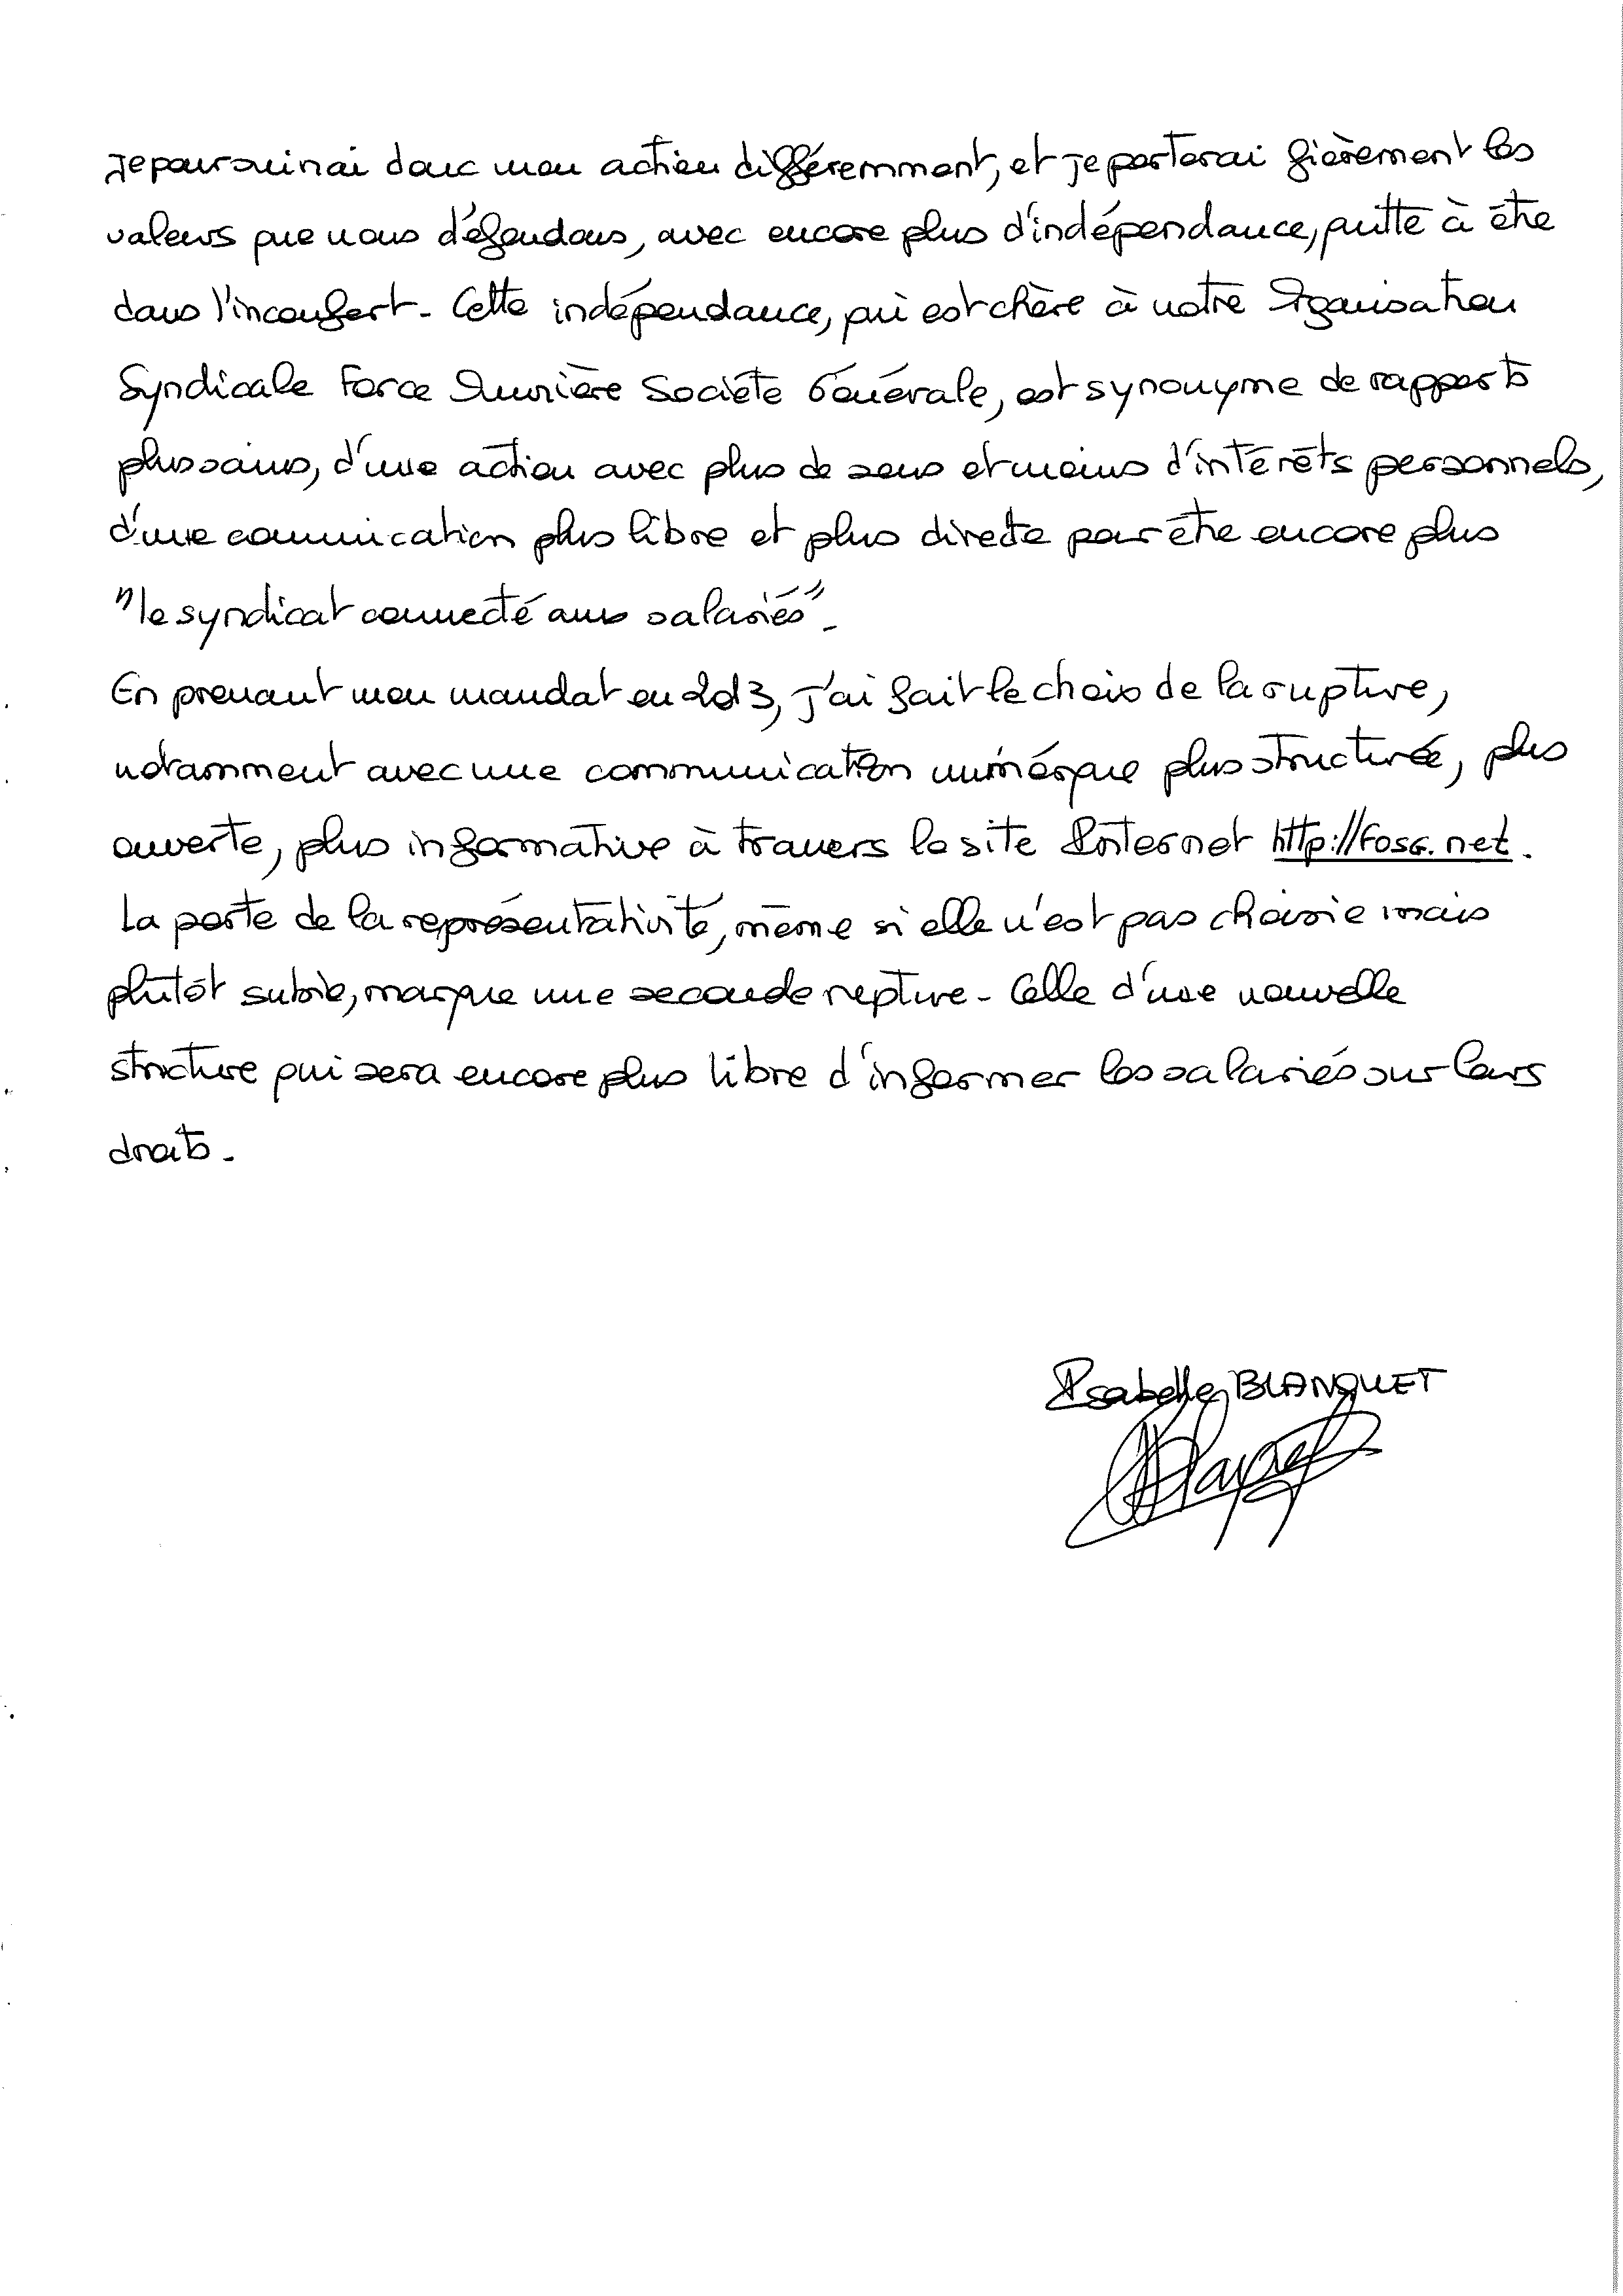 Je poursuivrai donc mon action différemment, et je porterai fièrement les
valeurs que nous défendons, avec encore plus d'indépendance, quitte à être
dans l'inconfort. Cette indépendance, qui est chère à notre Organisation
Syndicale Force Ouvrière Société Générale, est synonyme de rapports
plus sains, d'une action avec plus de sens et moins d'intérêts personnels,
d'une communication plus libre et plus directe pour être encore plus
"le syndicat connecté aux salariés".
En prenant mon mandat en 2013, j'ai fait le choix de la rupture,
notamment avec une communication numérique plus structurée, plus
ouverte, plus informative à travers le site Internet http://fosg.net.
La perte de la représentativité, même si elle n'est pas choisie mais
plutôt subie, marque une seconde rupture. Celle d'une nouvelle
structure qui sera encore plus libre d'informer les salariés sur leurs
droits.
Isabelle BLANQUET